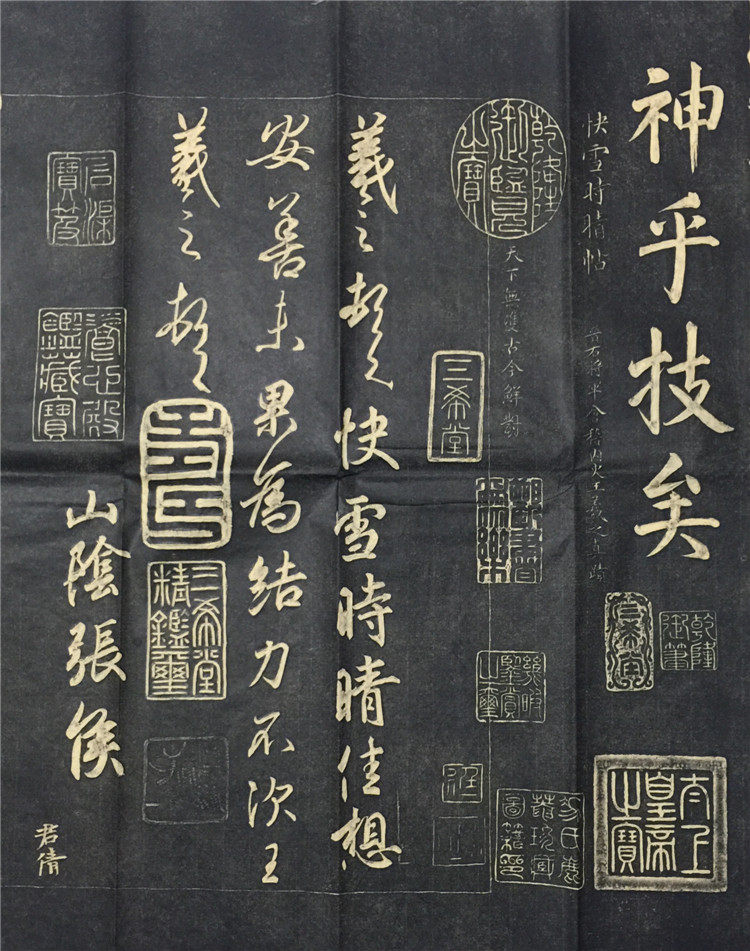 神乎技矣
快雪時晴帖
晉右將軍會稽内史王羲之真蹟
乾隆御筆
太上皇帝之寶
乾隆御覽之寶
天下無雙古今鮮對
三希堂
羲之頓首快雪時晴佳想
安善未果為結力不次王
羲之頓首
三希堂精鑑璽
山陰張侯
石渠寶笈
養心殿鑑藏寶
君倩